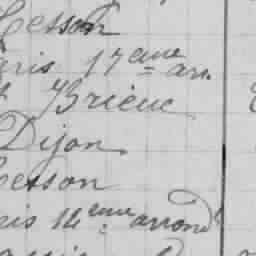 Cesson
Paris 17 eme arr.
St Brieuc
Dijon
Cesson
Paris 14 eme arrond